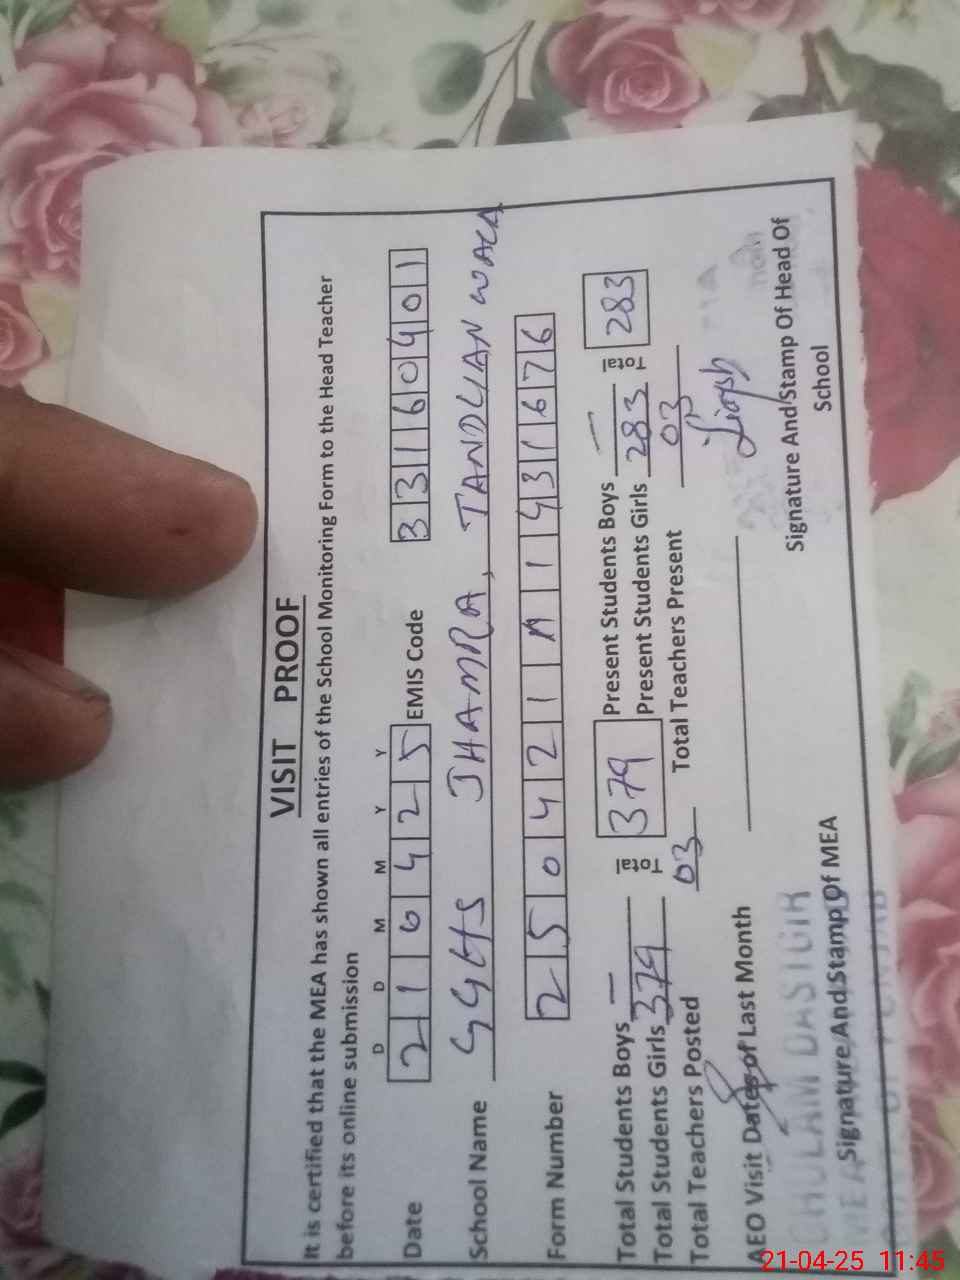 VISIT PROOF
It is certified that the MEA has shown all entries of the School Monitoring Form to the Head Teacher
before its online submission
D D M M Y Y
Date 2 1 0 4 2 5 EMIS Code 3 3 1 6 0 4 0 1
School Name GGHS JHAMRA, TANDLIAN WALA
Form Number 2 5 0 4 2 1 1 A 1 4 3 1 6 7 6
Total Students Boys — Total 379 Present Students Boys — Total 283
Total Students Girls 379 Present Students Girls 283
Total Teachers Posted 03 Total Teachers Present 03
AEO Visit Dates of Last Month
GHULAM DASTGIR
MEA
Signature And Stamp Of MEA
Signature And Stamp Of Head Of
School
21-04-25 11:45